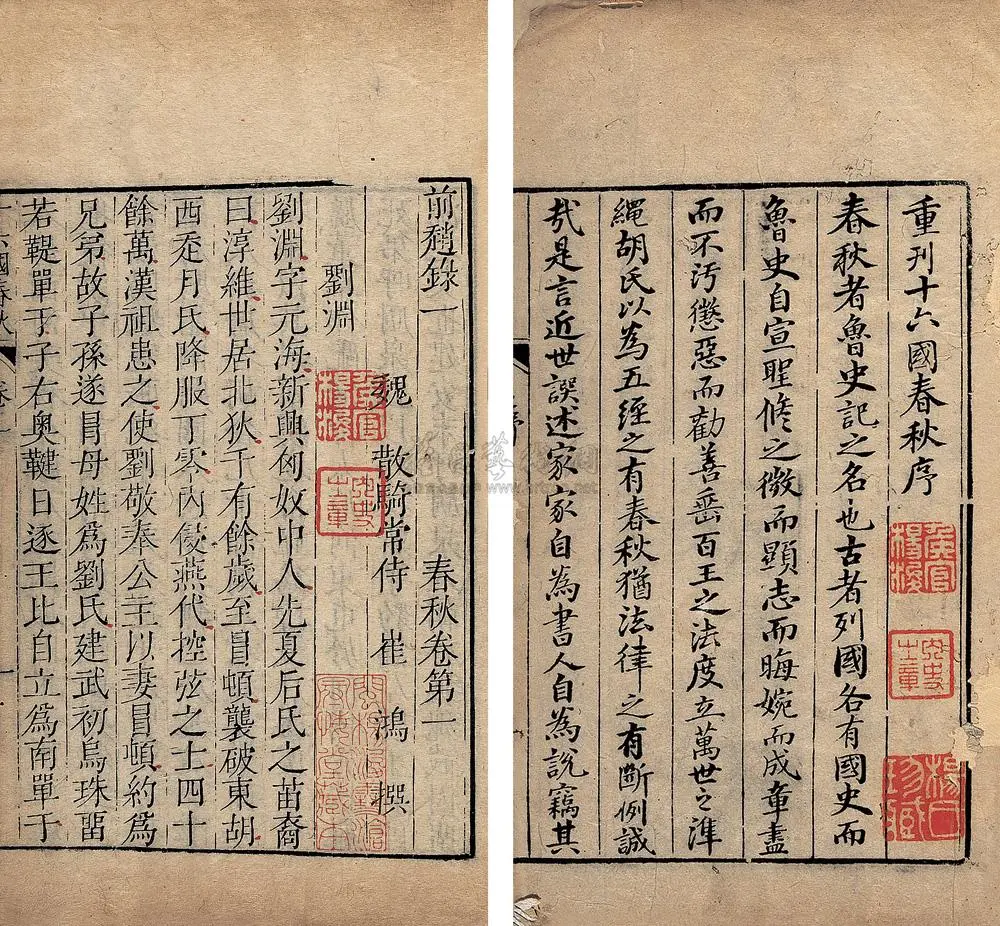 重刊十六國春秋序
春秋者魯史記之名也古者列國各有國史而
魯史自宣聖修之微而顯志而晦婉而成章盡
而不汚懲惡而勸善垂百王之法度立萬世之準
繩胡氏以為五經之有春秋猶法律之有斷例誠
㢤是言近世誤述家家自為書人自為說竊其
前趙錄一 春秋卷第一
魏 散騎常侍 崔 鴻 撰
劉淵
劉淵字元海新興匈奴中人先夏后氏之苗裔
曰淳維世居北狄千有餘歲至冒頓襲破東胡
西走月氏降服丁零內侵燕代控弦之士四十
餘萬漢祖患之使劉敬奉公主以妻冒頓約爲
兄弟故子孫遂冒母姓爲劉氏建武初烏珠留
若鞮單于子右奥鞬日逐王比自立爲南單于